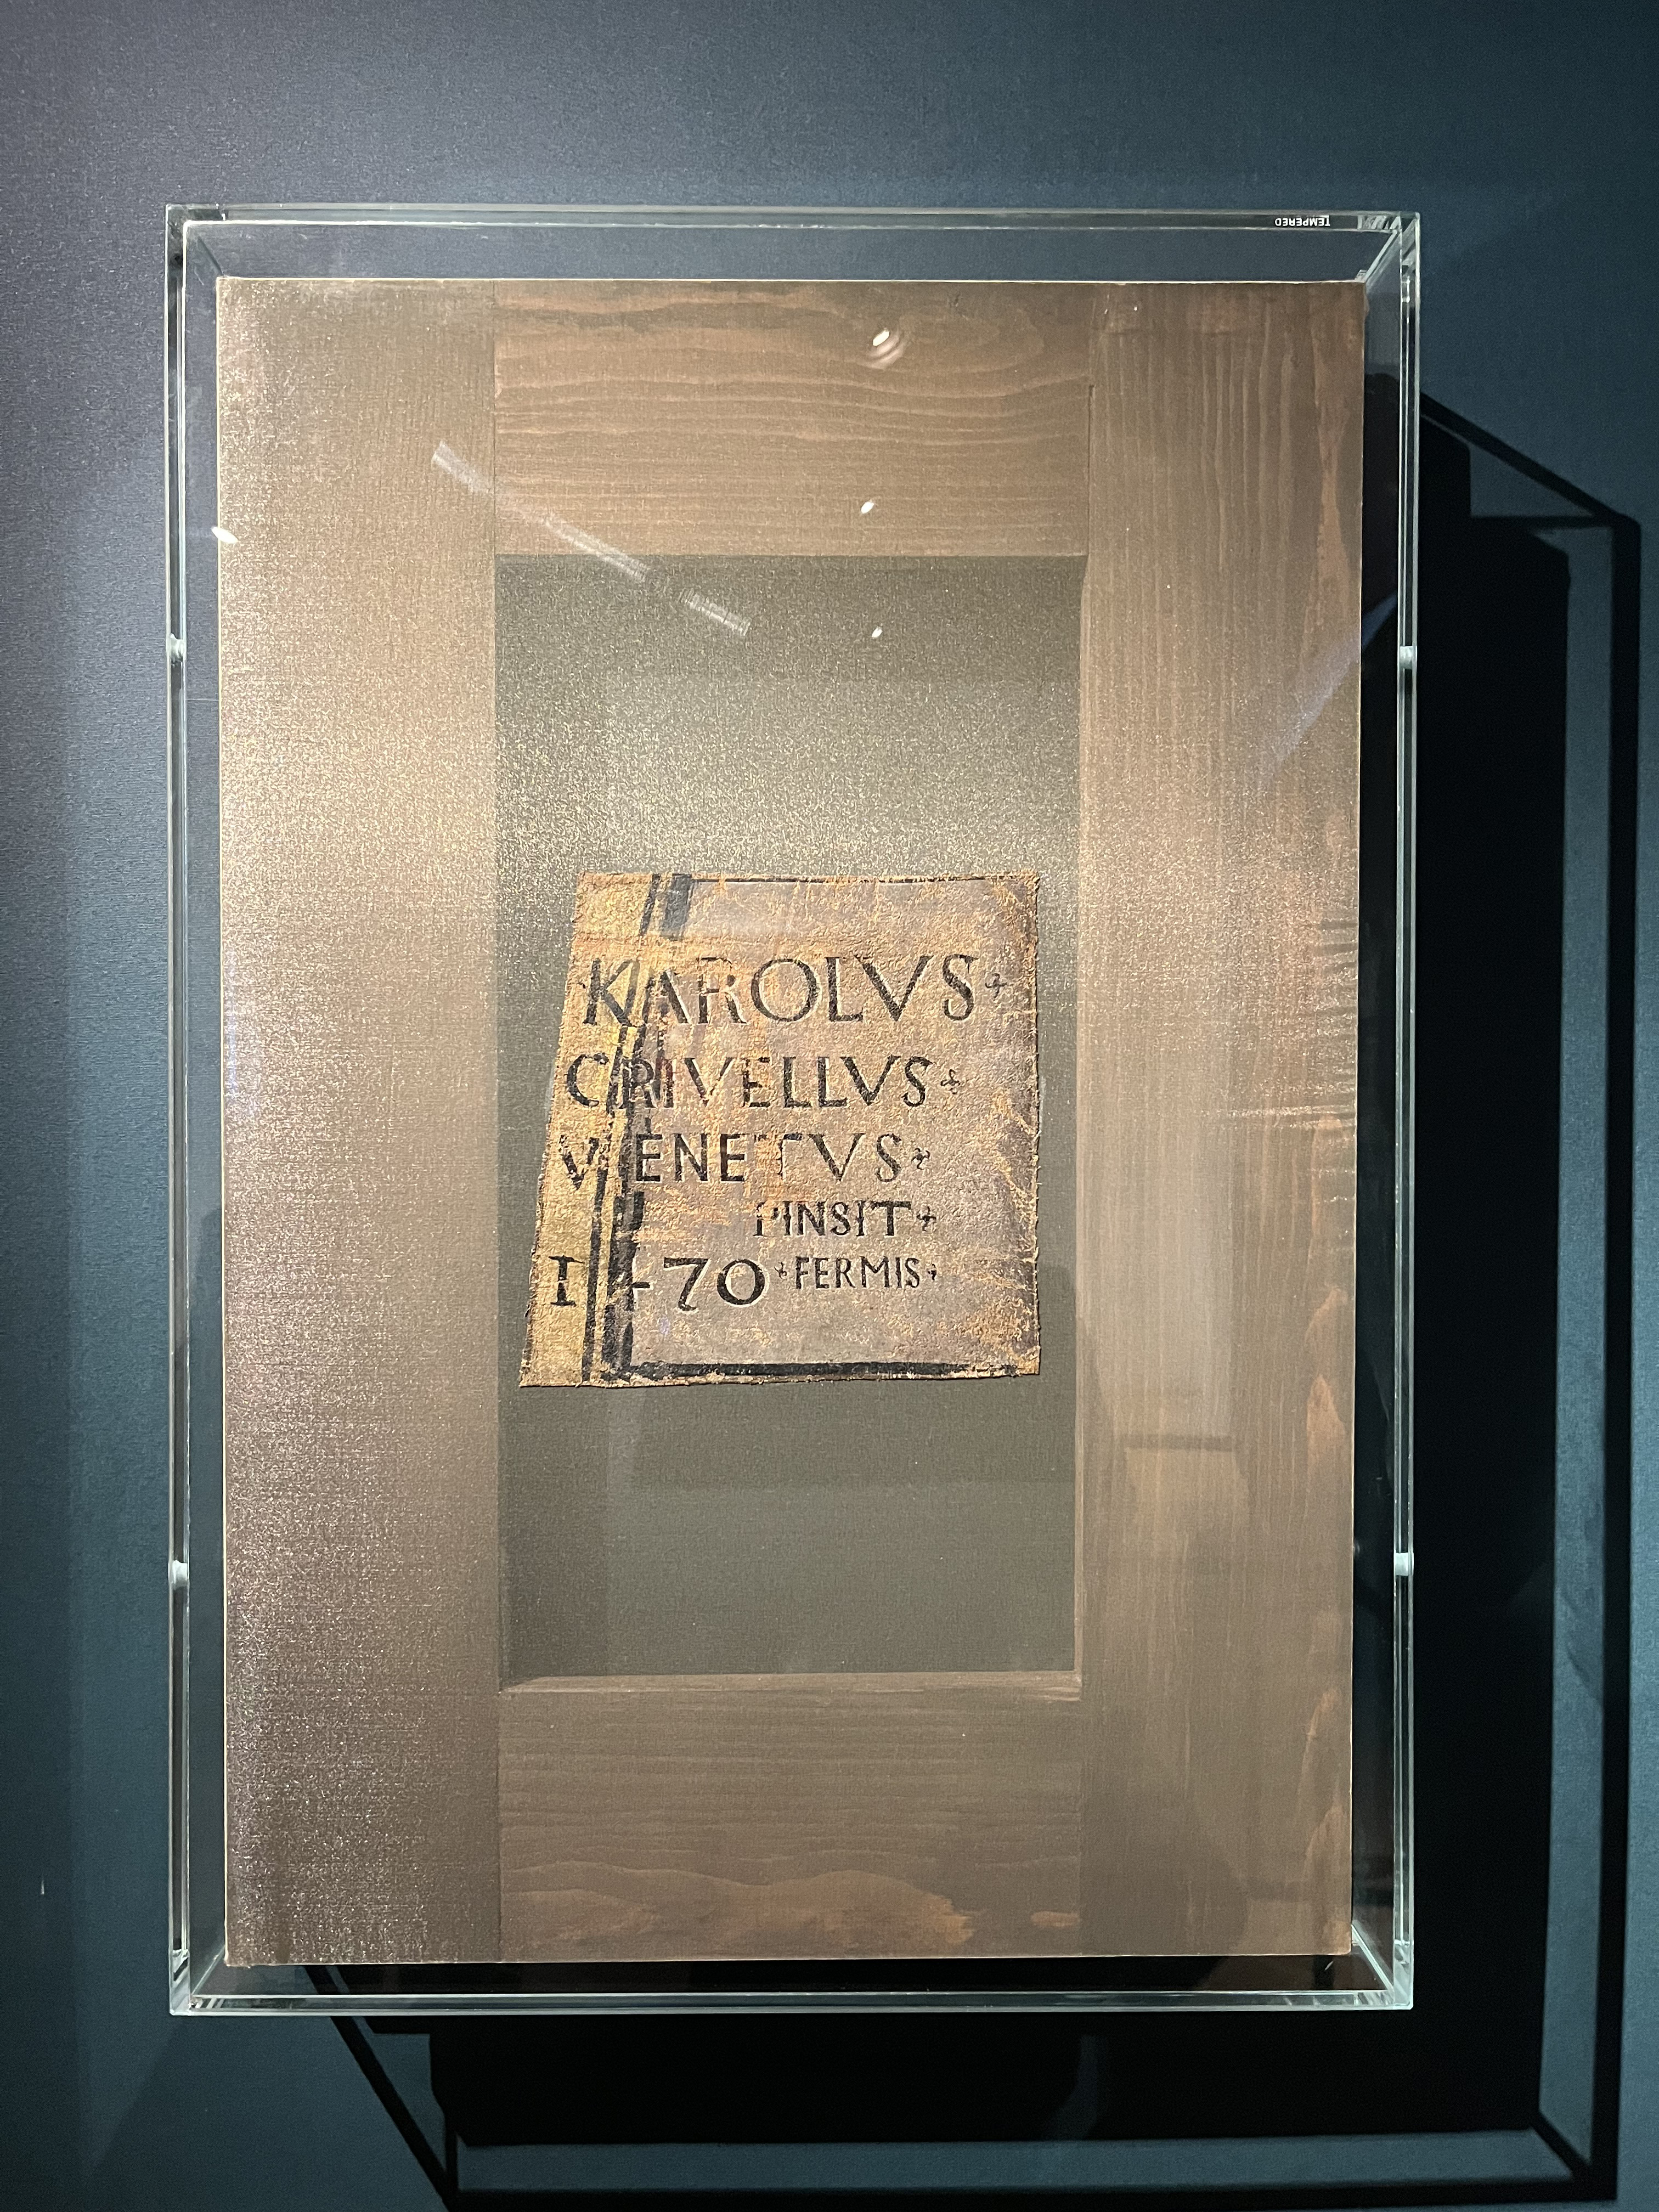 TEMPERED
KAROLVS
CRIVELLVS
VENETVS
PINSIT
1470 FERMIS